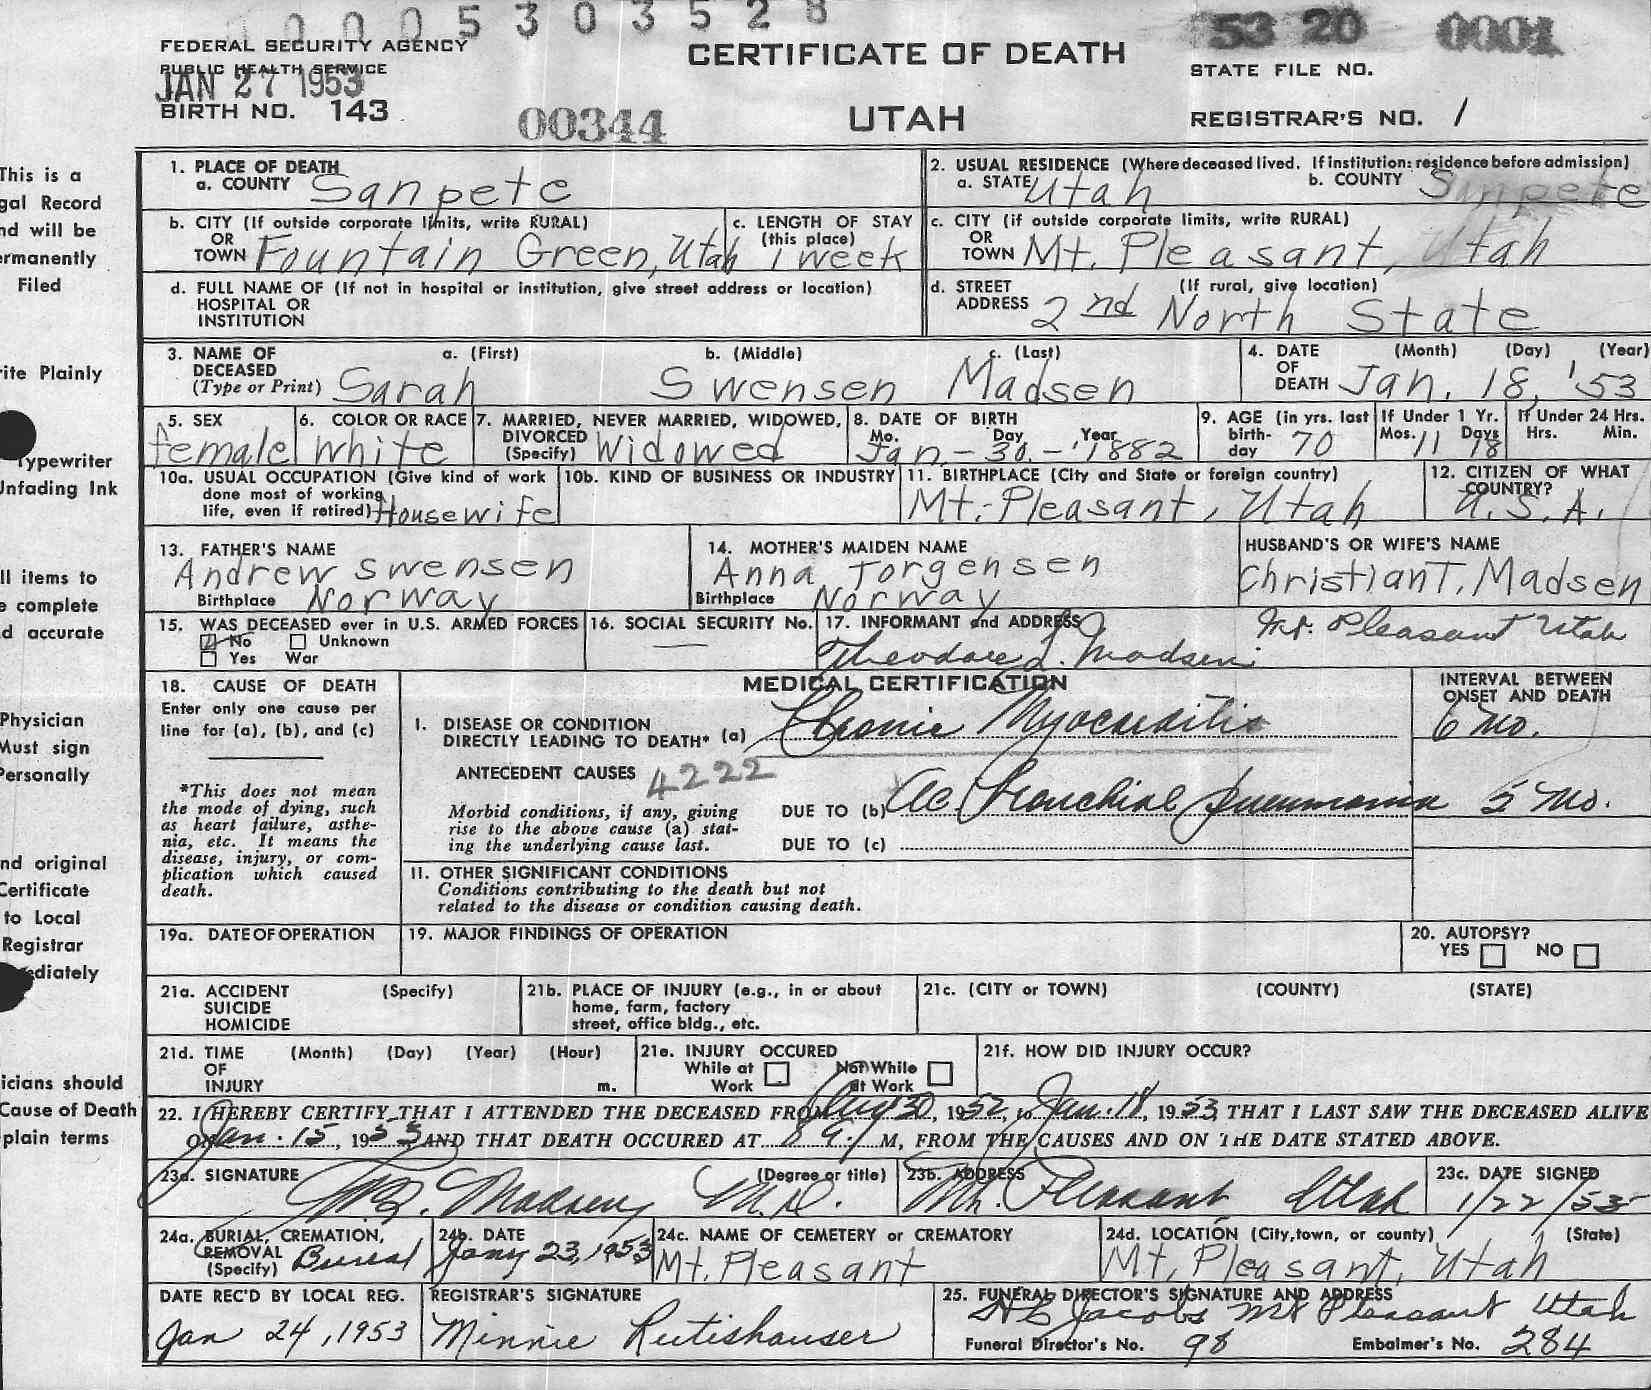 0 0 0 5 3 0 3 5 2 8
53 20 0001
FEDERAL SECURITY AGENCY
PUBLIC HEALTH SERVICE
JAN 27 1953
BIRTH NO. 143
00344
CERTIFICATE OF DEATH
UTAH
STATE FILE NO.
REGISTRAR'S NO. 1
This is a
gal Record
nd will be
ermanently
Filed
rite Plainly
Typewriter
Unfading Ink
ll items to
e complete
d accurate
Physician
Must sign
Personally
nd original
Certificate
to Local
Registrar
ediately
icians should
Cause of Death
plain terms
1. PLACE OF DEATH
a. COUNTY Sanpete
2. USUAL RESIDENCE (Where deceased lived. If institution: residence before admission)
a. STATE Utah b. COUNTY Sanpete
b. CITY (If outside corporate limits, write RURAL)
OR
TOWN Fountain Green, Utah
c. LENGTH OF STAY
(this place)
1 week
c. CITY (if outside corporate limits, write RURAL)
OR
TOWN Mt. Pleasant, Utah
d. FULL NAME OF (If not in hospital or institution, give street address or location)
HOSPITAL OR
INSTITUTION
d. STREET (If rural, give location)
ADDRESS 2nd North State
3. NAME OF DECEASED
(Type or Print)
a. (First) b. (Middle) c. (Last)
Sarah Swensen Madsen
4. DATE OF DEATH
(Month) (Day) (Year)
Jan. 18, '53
5. SEX
female
6. COLOR OR RACE
White
7. MARRIED, NEVER MARRIED, WIDOWED,
DIVORCED
(Specify) Widowed
8. DATE OF BIRTH
Mo. Day Year
Jan - 30 - 1882
9. AGE (in yrs. last
birth-
day 70
If Under 1 Yr.
Mos. 11 Days 18
If Under 24 Hrs.
Hrs. Min.
10a. USUAL OCCUPATION (Give kind of work
done most of working
life, even if retired) Housewife
10b. KIND OF BUSINESS OR INDUSTRY
11. BIRTHPLACE (City and State or foreign country)
Mt. Pleasant, Utah
12. CITIZEN OF WHAT
COUNTRY?
U.S.A.
13. FATHER'S NAME
Andrew Swensen
Birthplace Norway
14. MOTHER'S MAIDEN NAME
Anna Jorgensen
Birthplace Norway
HUSBAND'S OR WIFE'S NAME
Christian T. Madsen
15. WAS DECEASED ever in U.S. ARMED FORCES
No Unknown
Yes War
16. SOCIAL SECURITY No.
—
17. INFORMANT and ADDRESS
Theodore J. Madsen Mt. Pleasant Utah
18. CAUSE OF DEATH
Enter only one cause per
line for (a), (b), and (c)
*This does not mean
the mode of dying, such
as heart failure, asthe-
nia, etc. It means the
disease, injury, or com-
plication which caused
death.
MEDICAL CERTIFICATION
INTERVAL BETWEEN
ONSET AND DEATH
I. DISEASE OR CONDITION
DIRECTLY LEADING TO DEATH* (a) Chronic Myocarditis 6 Mo.
ANTECEDENT CAUSES 4222
Morbid conditions, if any, giving
rise to the above cause (a) stat-
ing the underlying cause last.
DUE TO (b) Ac. Bronchial Pneumonia 5 Mo.
DUE TO (c)
11. OTHER SIGNIFICANT CONDITIONS
Conditions contributing to the death but not
related to the disease or condition causing death.
19a. DATE OF OPERATION
19. MAJOR FINDINGS OF OPERATION
20. AUTOPSY?
YES NO
21a. ACCIDENT (Specify)
SUICIDE
HOMICIDE
21b. PLACE OF INJURY (e.g., in or about
home, farm, factory
street, office bldg., etc.
21c. (CITY or TOWN) (COUNTY) (STATE)
21d. TIME (Month) (Day) (Year) (Hour)
OF
INJURY m.
21e. INJURY OCCURED
While at Work
Not While at Work
21f. HOW DID INJURY OCCUR?
22. I HEREBY CERTIFY THAT I ATTENDED THE DECEASED FROM Aug 30, 1952, to Jan. 18, 1953, THAT I LAST SAW THE DECEASED ALIVE
ON Jan. 15, 1953 AND THAT DEATH OCCURED AT 8 9. M, FROM THE CAUSES AND ON THE DATE STATED ABOVE.
23a. SIGNATURE (Degree or title)
Madsen M.D.
23b. ADDRESS
Mt. Pleasant Utah
23c. DATE SIGNED
1/22/53
24a. BURIAL, CREMATION,
REMOVAL
(Specify) Burial
24b. DATE
Jany 23, 1953
24c. NAME OF CEMETERY or CREMATORY
Mt. Pleasant
24d. LOCATION (City, town, or county) (State)
Mt. Pleasant, Utah
DATE REC'D BY LOCAL REG.
Jan 24, 1953
REGISTRAR'S SIGNATURE
Minnie Rutishauser
25. FUNERAL DIRECTOR'S SIGNATURE AND ADDRESS
Jacobs Mt Pleasant Utah
Funeral Director's No. 98 Embalmer's No. 284